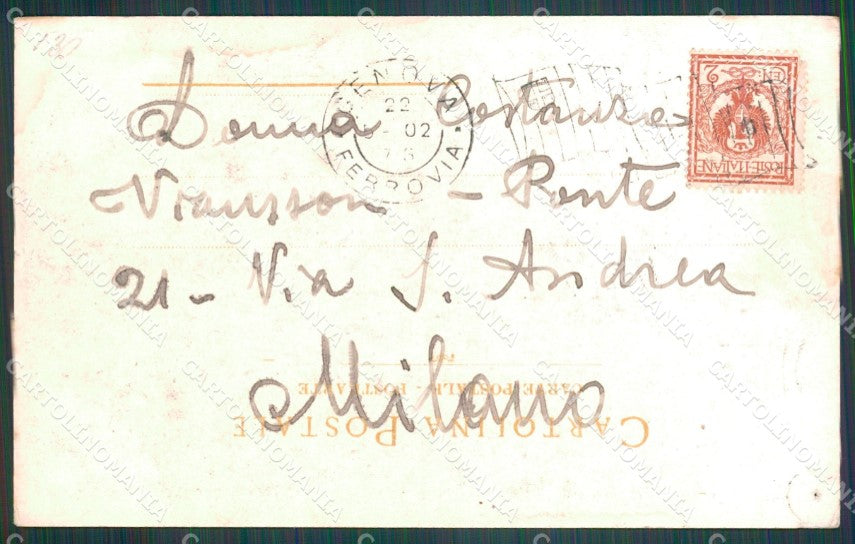 130
GENOVA
22
02
FERROVIA
Donna Costanza
Viansson - Ponte
21 - Via S. Andrea
Milano
CARTOLINA POSTALE
CARTE POSTALE - POSTKARTE
POSTE ITALIANE
CENT. 2
CARTOLINOMANIA